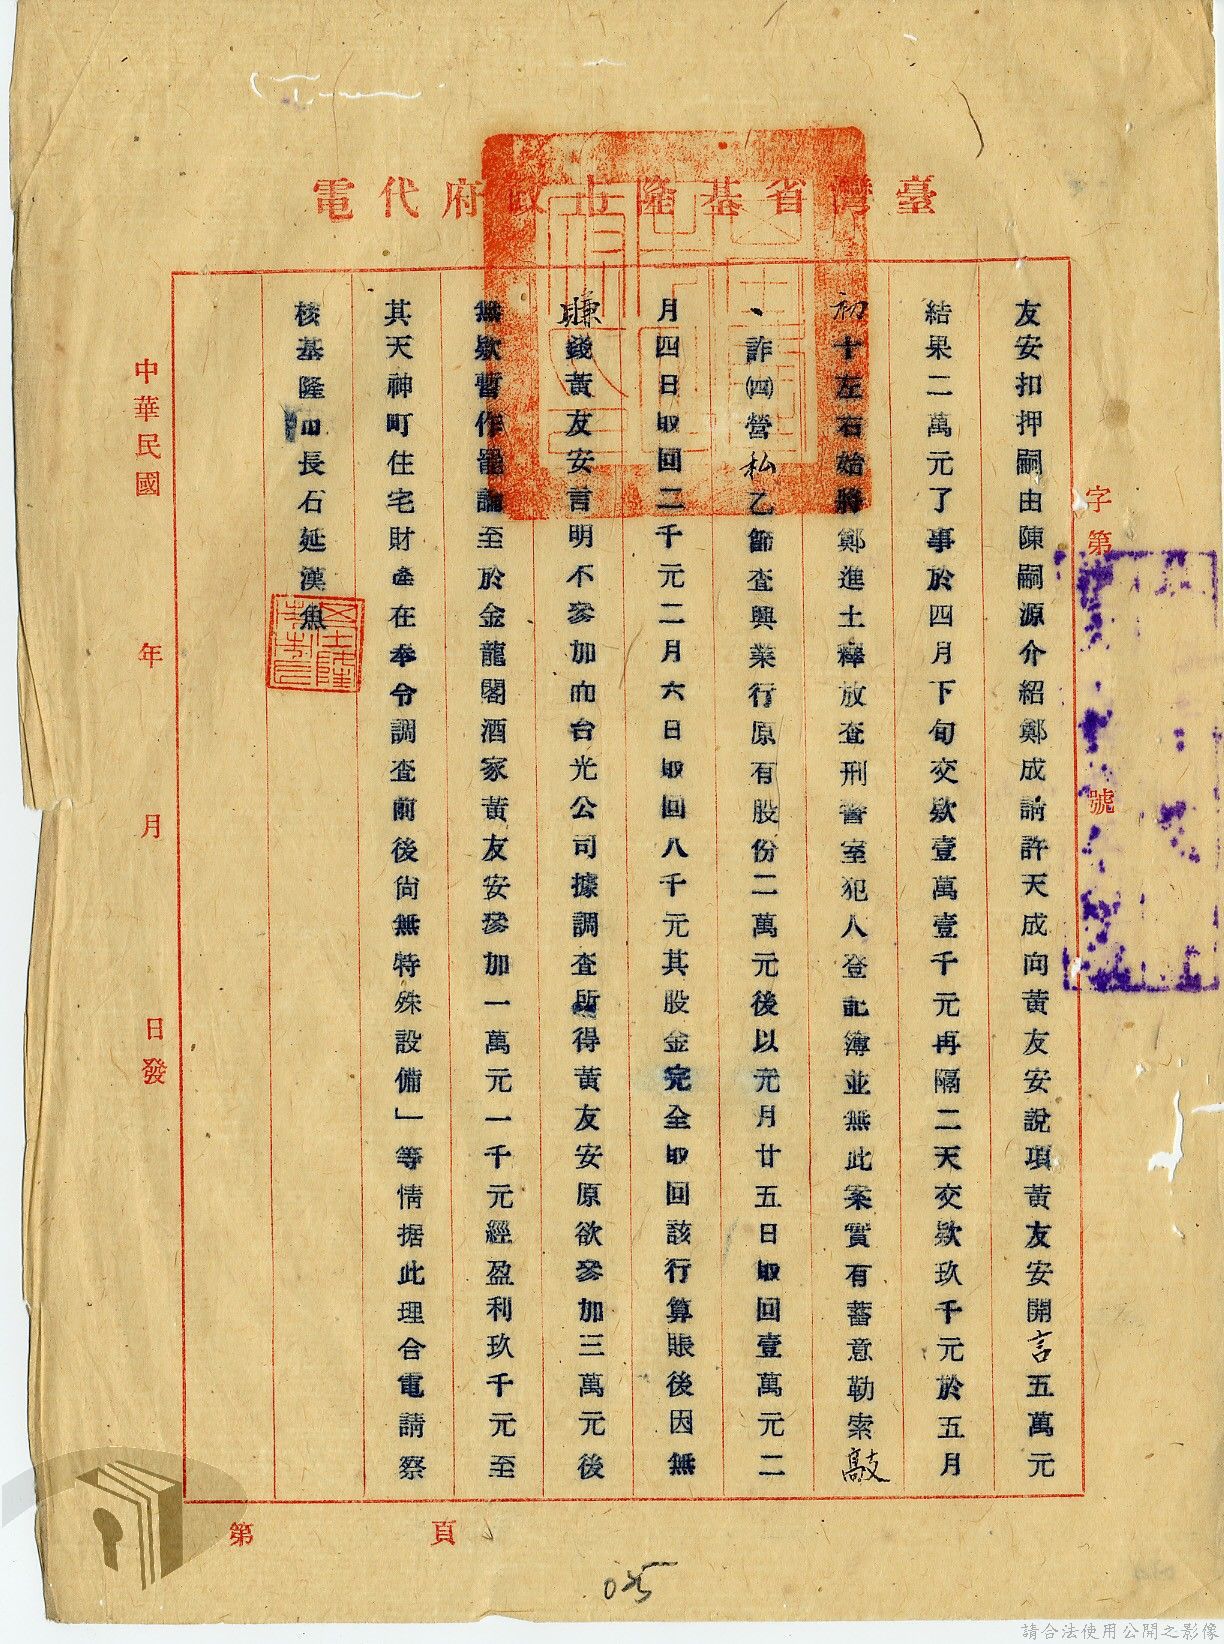 臺灣省基隆市政府代電
字第 號
友安扣押嗣由陳嗣源介紹鄭成請許天成向黃友安說項黃友安開言五萬元
結果二萬元了事於四月下旬交欵壹萬壹千元再隔二天交欵玖千元於五月
初十左右始將鄭進土釋放查刑警室犯人登記簿並無此案實有蓄意勒索敲
、詐㈣營私乙節查興業行原有股份二萬元後以元月廿五日取回壹萬元二
月四日取回二千元二月六日取回八千元其股金完全取回該行算賬後因無
賺錢黃友安言明不參加而台光公司據調查所得黃友安原欲參加三萬元後
無欵暫作罷論至於金龍閣酒家黃友安參加一萬元一千元經盈利玖千元至
其天神町住宅財產在奉令調查前後尙無特殊設備」等情据此理合電請察
核基隆市長石延漢魚
中華民國 年 月 日發
第 頁
025
請合法使用公開之影像